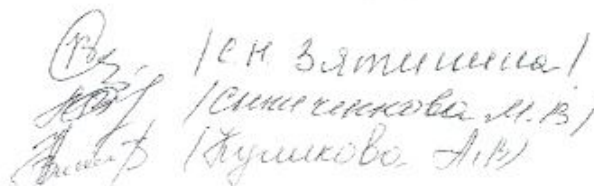 /С.Н. Зятинина/
/Синиченкова М.В/
/Куликова А.В/